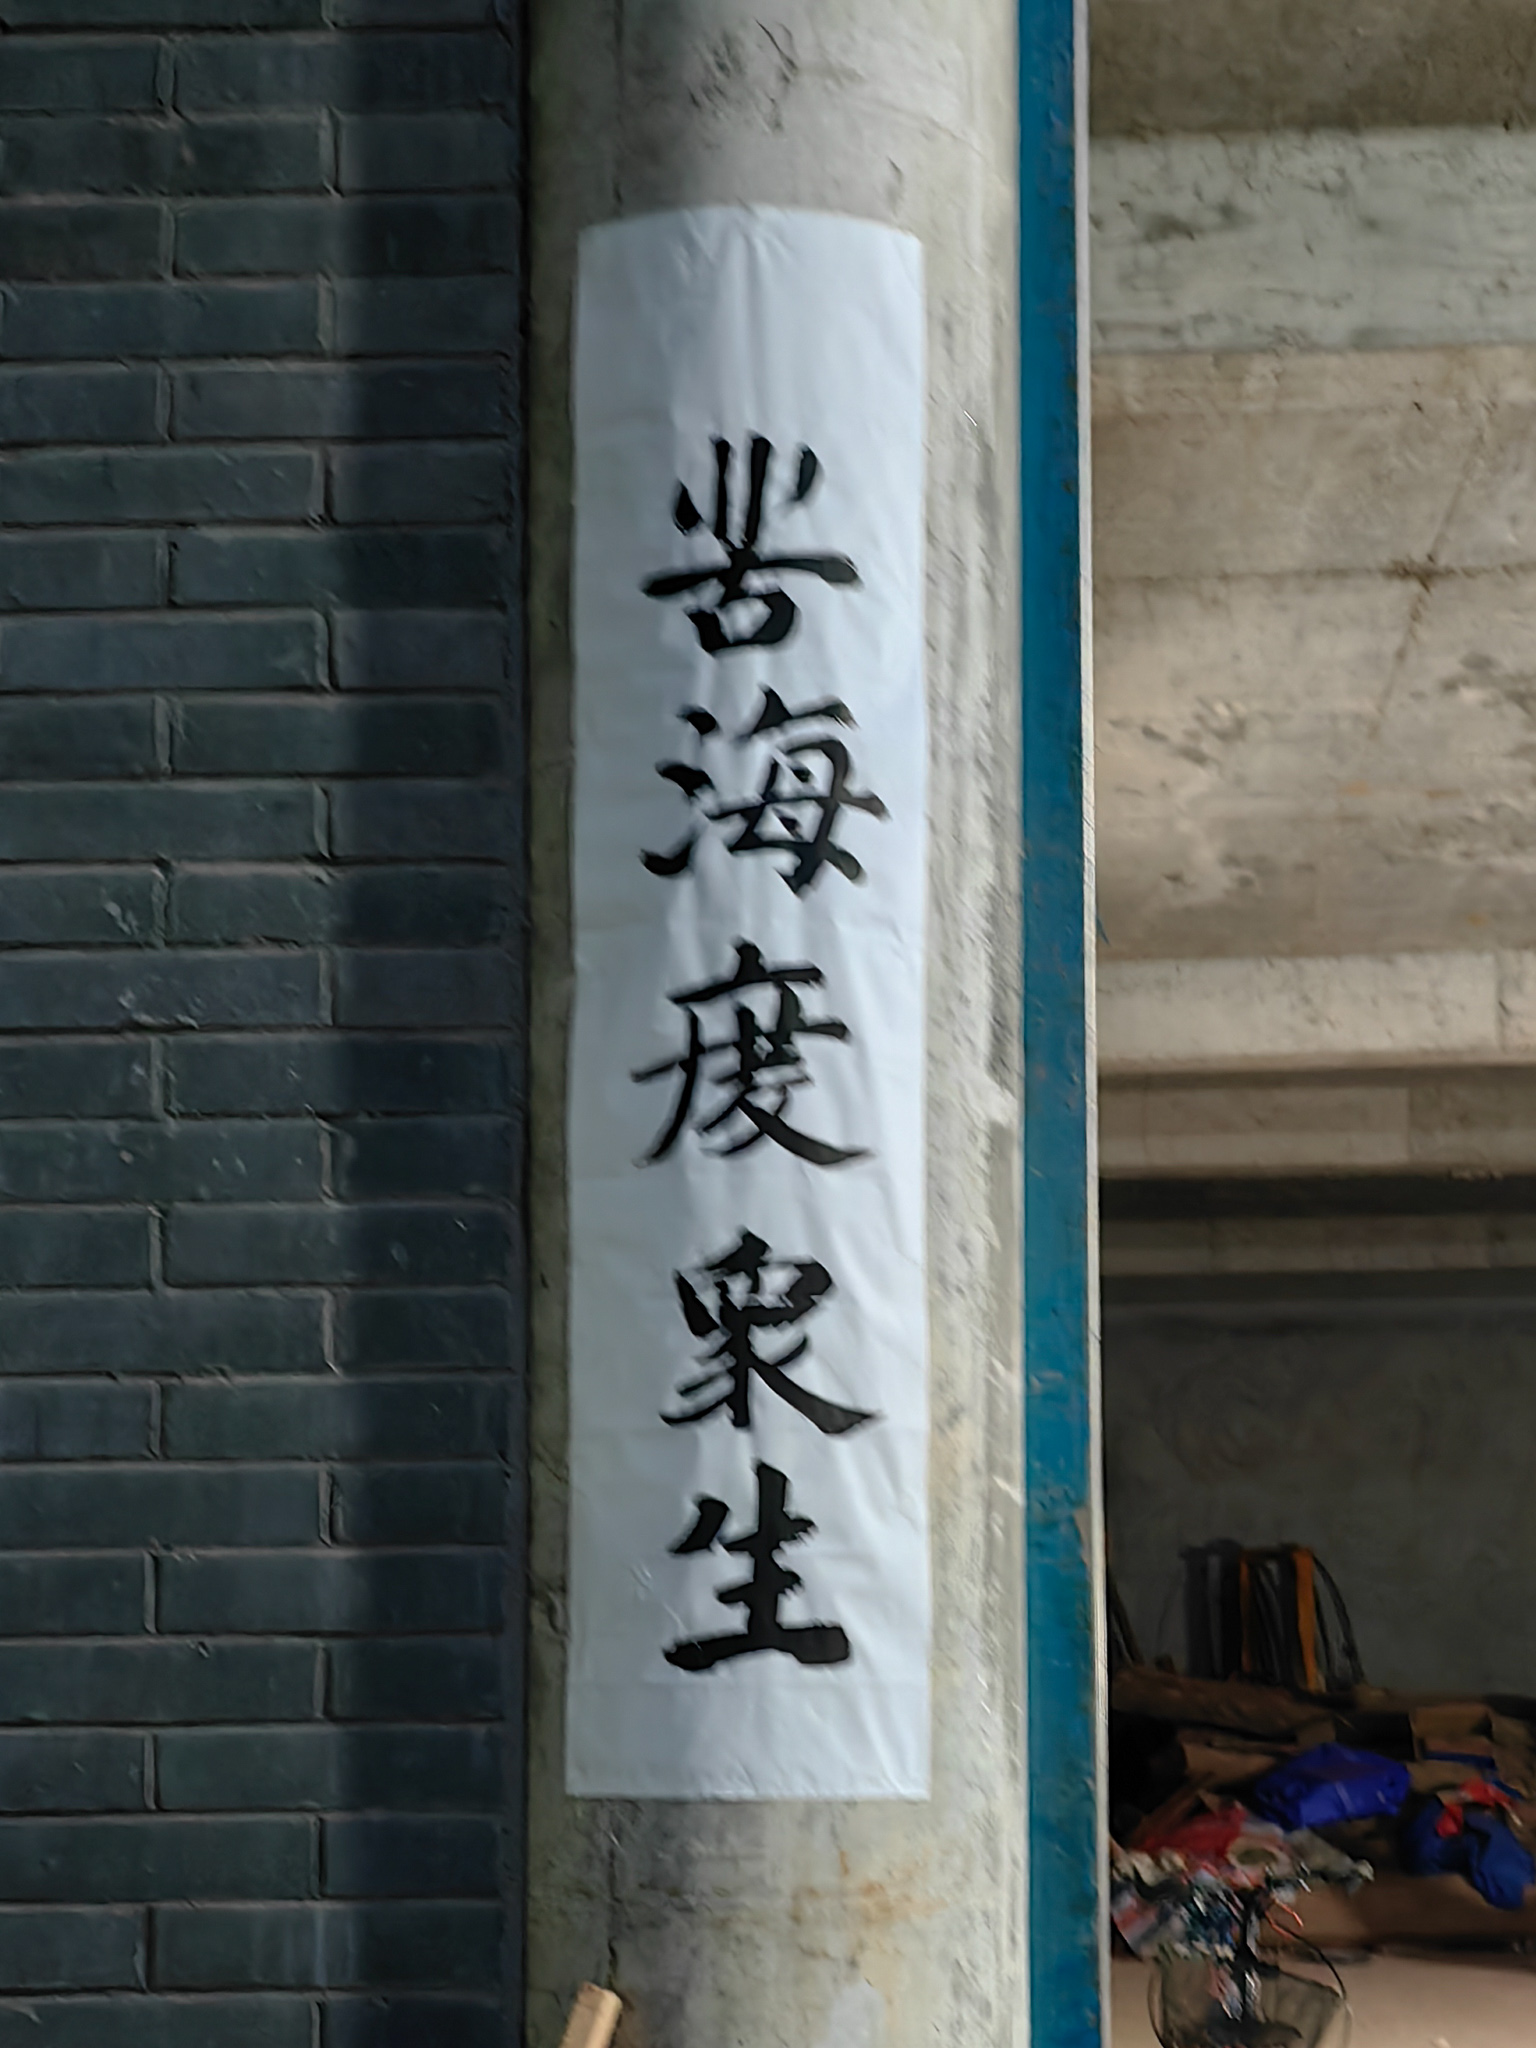 苦海度眾生